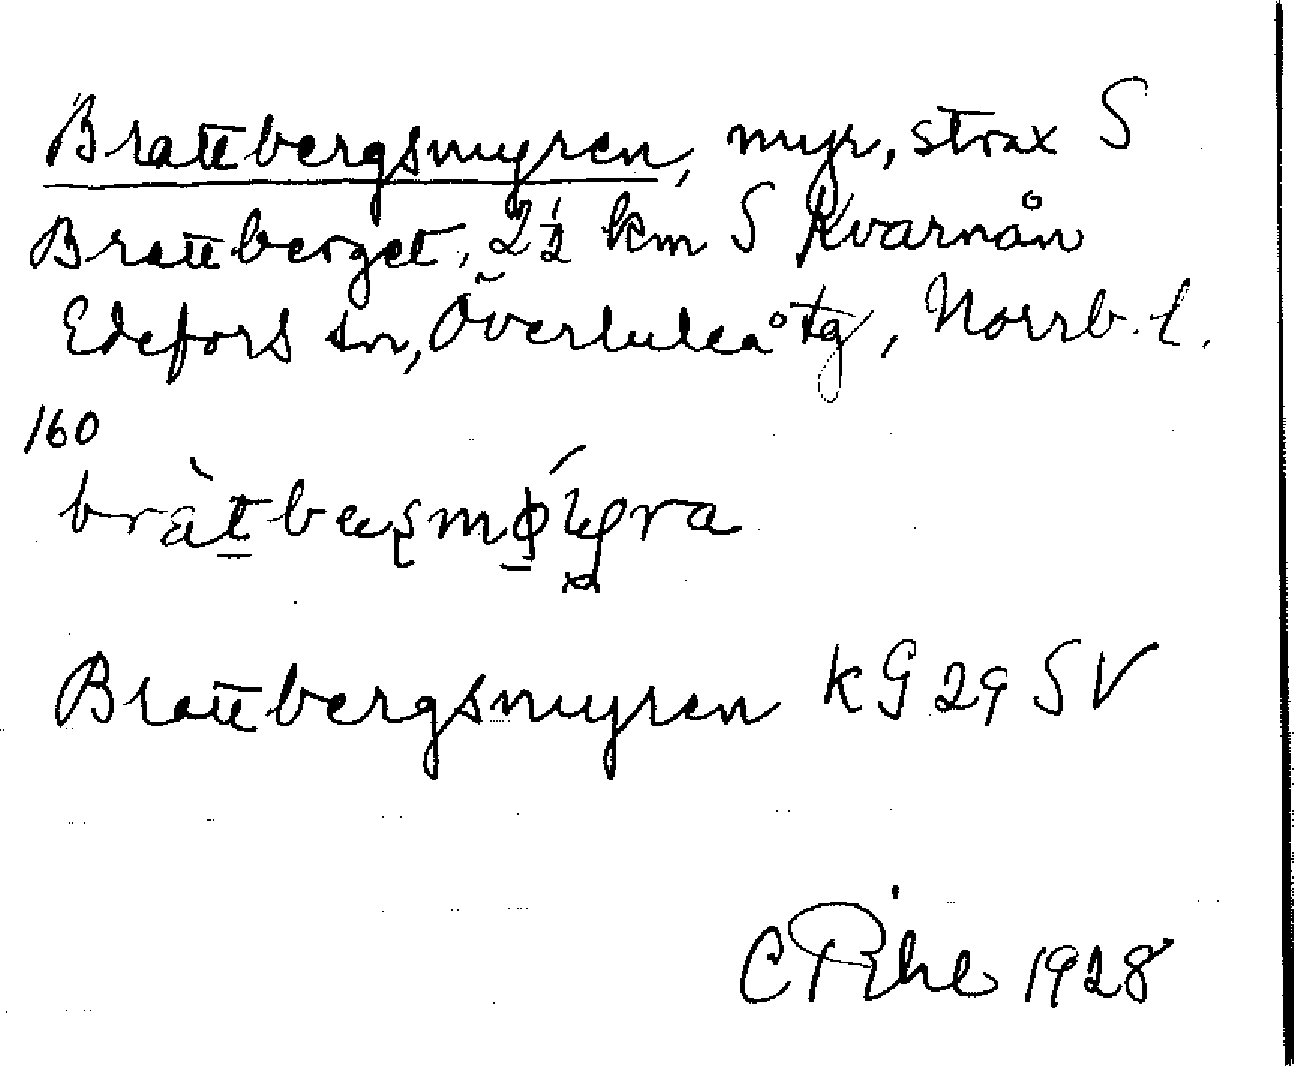 Brattbergsmyren, myr, strax S
Brattberget, 2½ km S Kvarnån
Edefors sn, Överluleå tg, Norrb. l.
160
Brattbergsmyren KG 29 SV
C Pihl 1928